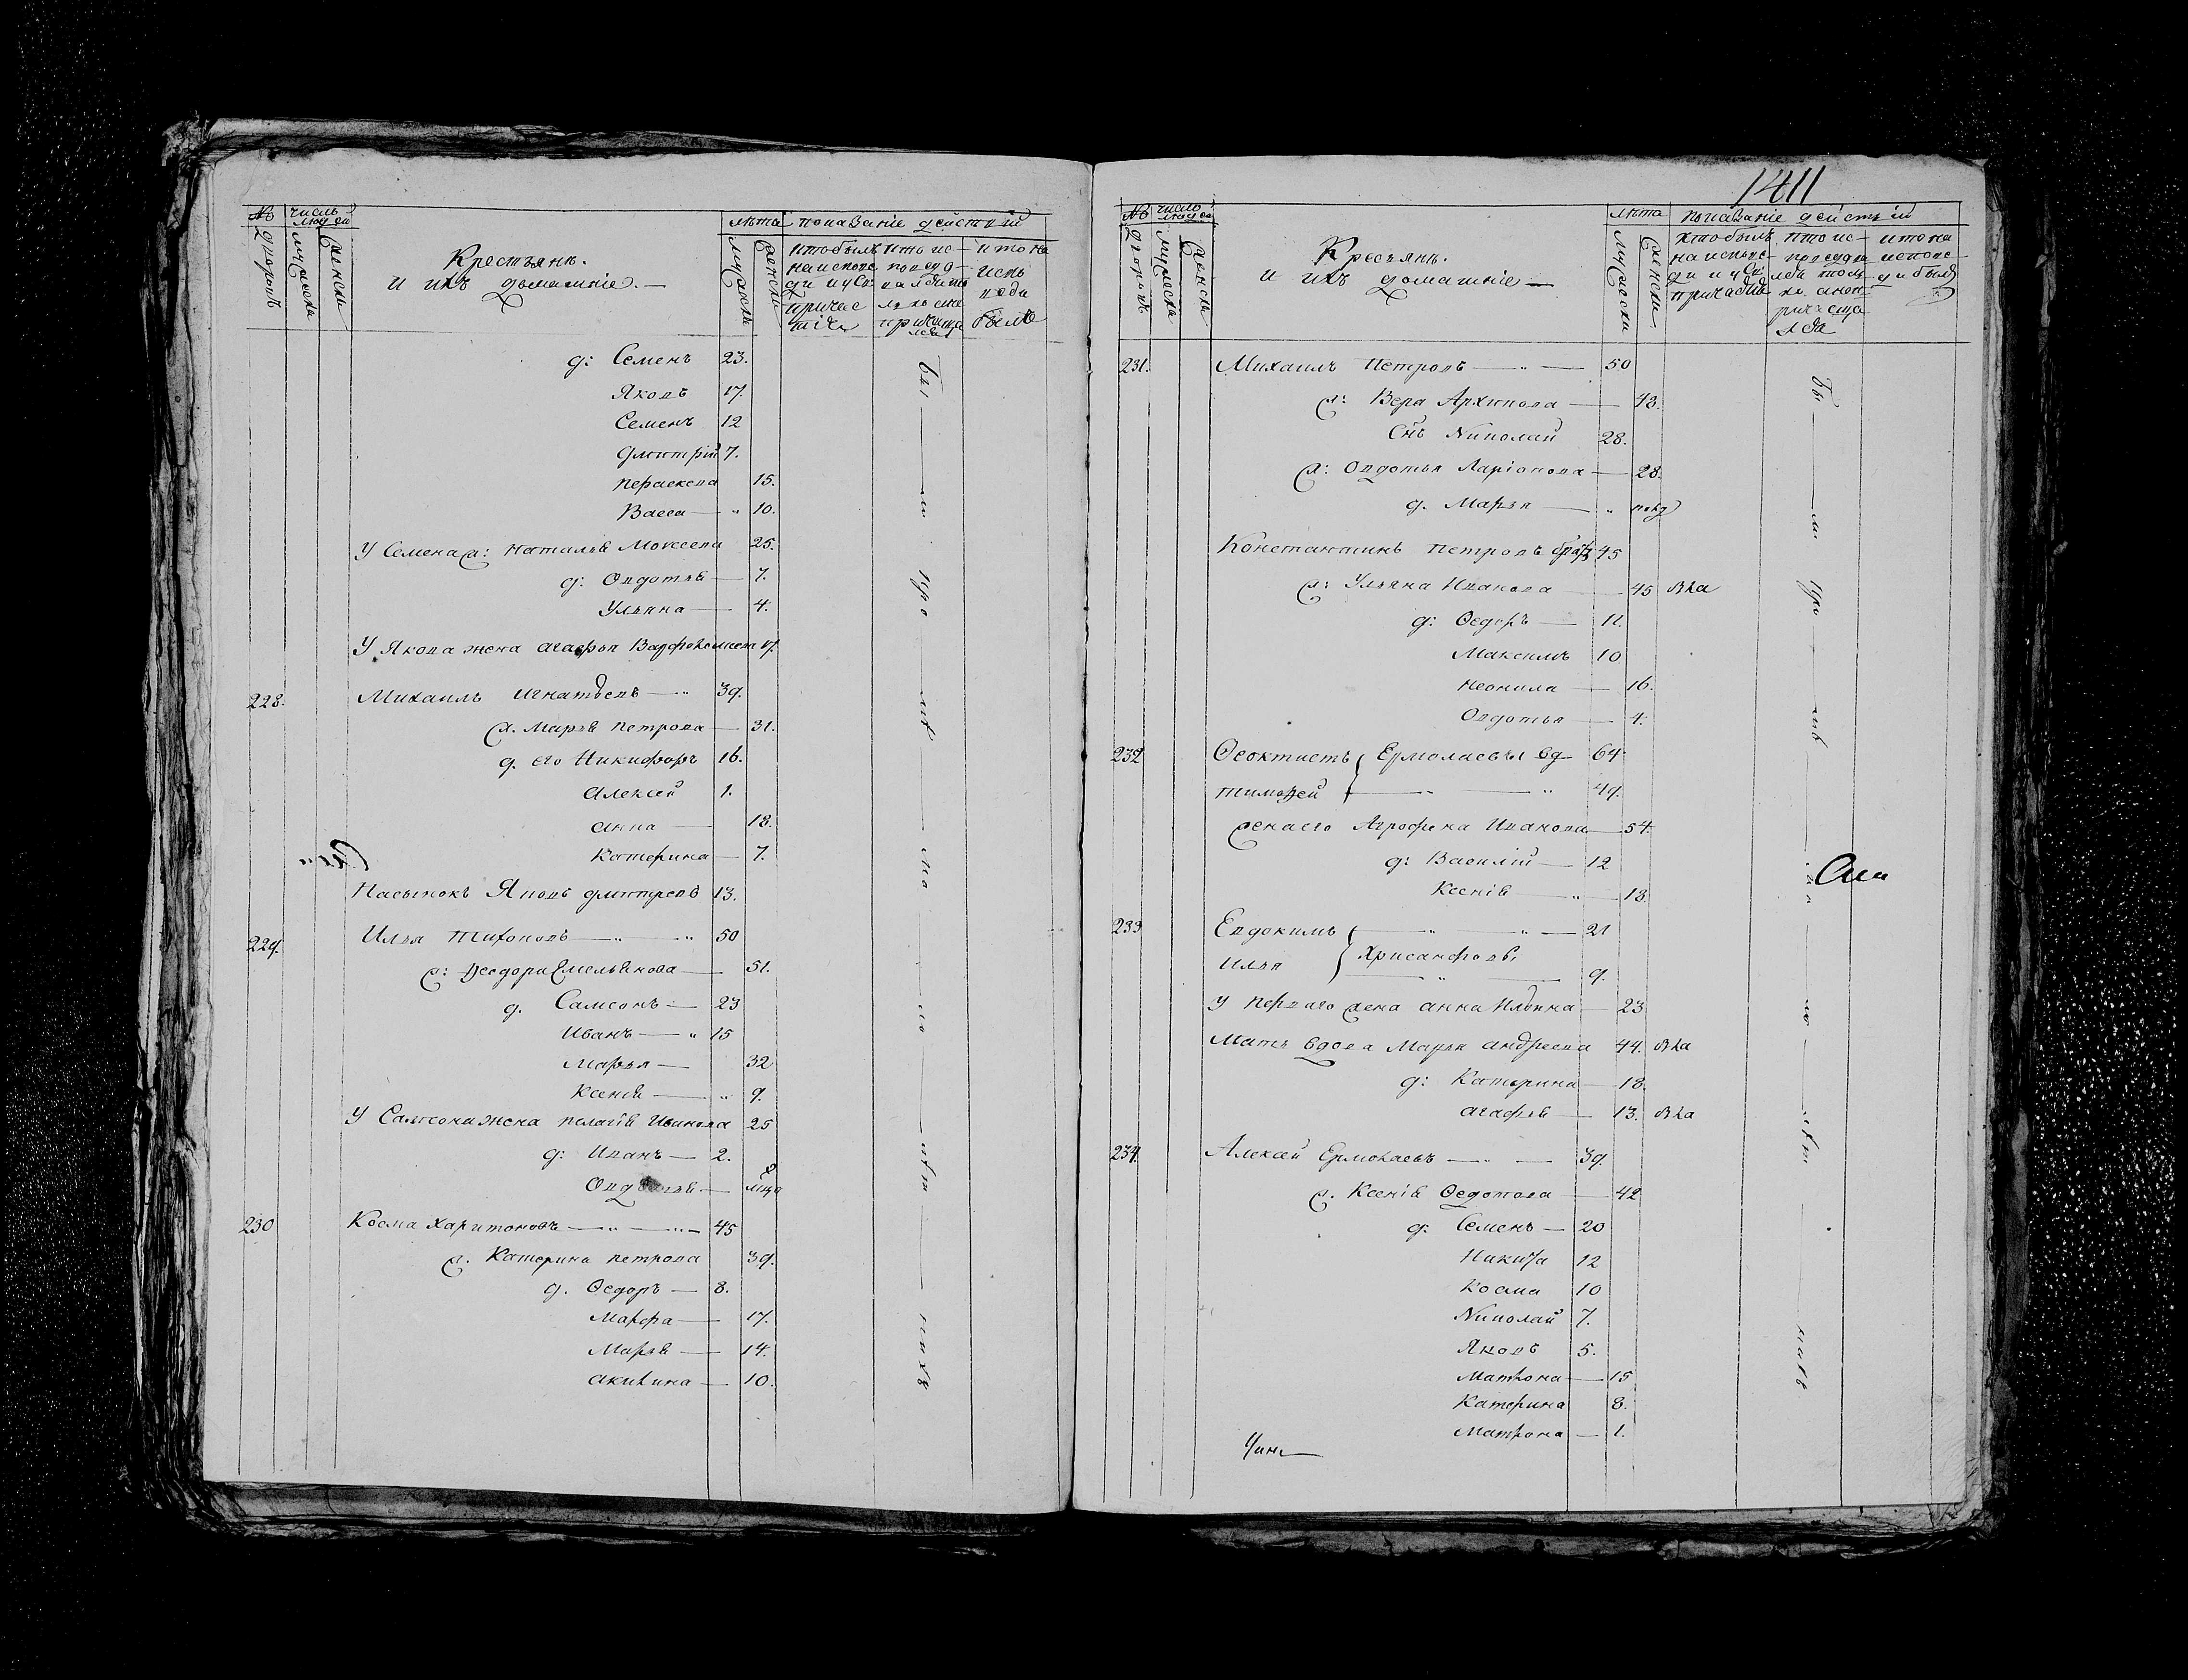 № дворовъ
число людей
мужеска
женска
Крестьянъ.
и ихъ домашніе. —
лѣта
мужски
женски
показаніе действій
кто былъ на испове ди и у Св: причас тія
кто ис- поведо вался то ль ко а не причаща лся
кто на испо веди былъ
д: Семенъ 23.
Яковъ 17.
Семенъ 12
Дмитрій 7.
Параскева 15.
Васса — " 10.
У Семена ж: Наталья Моисеева 25.
д: Овдотья — 7.
Ульяна — 4.
У Якова жена Агафья Варфоломеева 17.
228. Михаилъ Игнатьевъ — " 39.
ж. Марья Петрова — 31.
д. его Никифоръ 16.
Алексей 1.
Анна — 18.
Катерина — 7.
Пасынокъ Яковъ Дмитревъ 13.
229. Илья Тихоновъ — " " 50
ж: Ѳеодора Емельянова — 51.
д. Самсонъ — 23
Иванъ — " 15
Марья — 32
Ксенія — " 9.
У Самсона жена Пелагія Иванова 25
д: Иванъ — 2.
Овдотья —
230 Косма Харитоновъ — " — " — 45
ж. Катерина Петрова 39.
д. Ѳедоръ — 8.
Марфа — 17.
Марья — 14.
Акилина — 10.
1411
№ дворовъ
число людей
мужеска
женска
Кресьянъ.
и ихъ домашніе —
лѣта
мужески
женски
показаніе дейстьій
кто былъ на испове- ди и у Св: причастія
кто ис- поведа лся толь ко а не причаща лся
кто на испове- ди былъ
231. Михаилъ Петровъ — " — 50
ж: Вера Архипова — 48.
Снъ Николай 28.
ж: Овдотья Ларіонова — 28.
д. Марья — "
Константинъ Петровъ братъ 45
ж: Ульяна Иванова 45
д: Ѳедоръ — 11.
Максимъ 10
Неонила — 16.
Овдотья — 4.
232 Ѳеоктистъ Ермолаевы вд— 64
Тимоѳей — " — " 49.
жена его Агрофена Иванова — 54.
д: Василій — 12
Ксенія — " — 18
233 Евдокимъ — " — " — 21
Илья Хрисанфовы 9.
У Перваго жена Анна Ильина — 23
Мать вдова Марья Андреева 44.
д: Катерина — 18.
Агафья — 13.
234. Алексей Ермолаевъ — " — 39.
ж. Ксенія Ѳедотова — 42
д. Семенъ — 20
Никита 12
Косма 10
Николай 7.
Яковъ 5.
Матрона — 15
Катерина 8.
Матрона — 1.